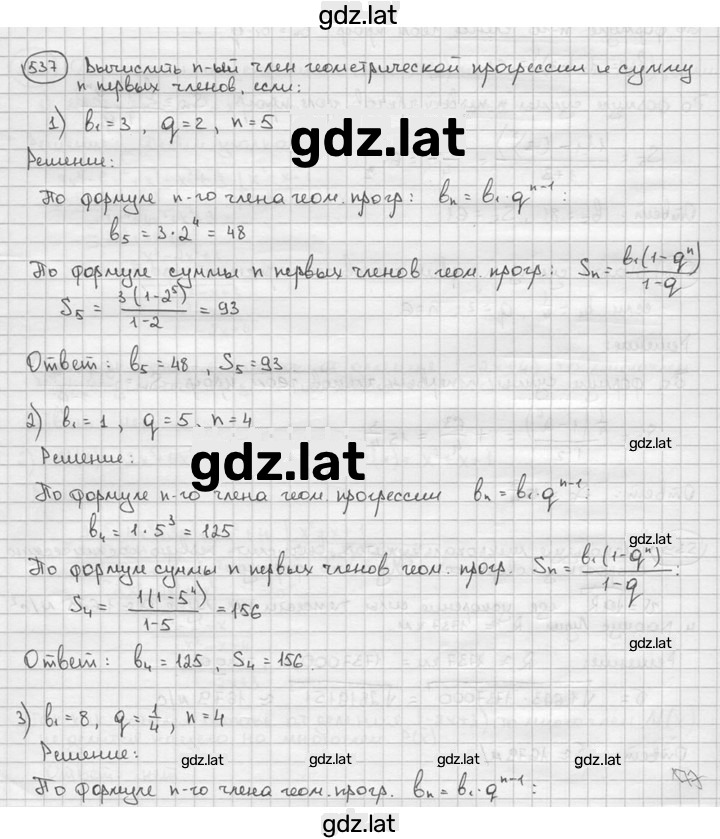 gdz.lat
537 Вычислить n-ый член геометрической прогрессии и сумму
n первых членов, если:
1) b₁=3, q=2, n=5
gdz.lat
Решение:
По формуле n-го члена геом. прогр: bₙ = b₁·qⁿ⁻¹:
b₅ = 3·2⁴ = 48
По формуле суммы n первых членов геом. прогр: Sₙ = b₁(1-qⁿ)/1-q
S₅ = 3(1-2⁵)/1-2 = 93
Ответ: b₅=48, S₅=93
2) b₁=1, q=5. n=4
gdz.lat
Решение:
gdz.lat
По формуле n-го члена геом. прогрессии bₙ = b₁·qⁿ⁻¹:
b₄ = 1·5³ = 125
gdz.lat
По формуле суммы n первых членов геом. прогр. Sₙ = b₁(1-qⁿ)/1-q:
S₄ = 1(1-5⁴)/1-5 = 156
gdz.lat
Ответ: b₄=125, S₄=156.
3) b₁=8, q=1/4, n=4
Решение:
gdz.lat gdz.lat gdz.lat gdz.lat
По формуле n-го члена геом. прогр. bₙ = b₁·qⁿ⁻¹:
177
gdz.lat